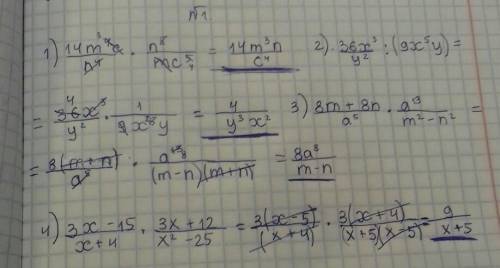 №1.
1) \frac{14m^3c}{n^7} · \frac{n^8}{mc^5} = \frac{14m^3n}{c^4} 2) \frac{36x^3}{y^2} : (9x^5y) =
= \frac{36x^3}{y^2} · \frac{1}{9x^5y} = \frac{4}{y^3x^2} 3) \frac{8m+8n}{a^5} · \frac{a^{13}}{m^2-n^2} =
= \frac{8(m+n)}{a^5} · \frac{a^{13}}{(m-n)(m+n)} = \frac{8a^8}{m-n}
4) \frac{3x-15}{x+4} · \frac{3x+12}{x^2-25} = \frac{3(x-5)}{(x+4)} · \frac{3(x+4)}{(x+5)(x-5)} = \frac{9}{x+5}